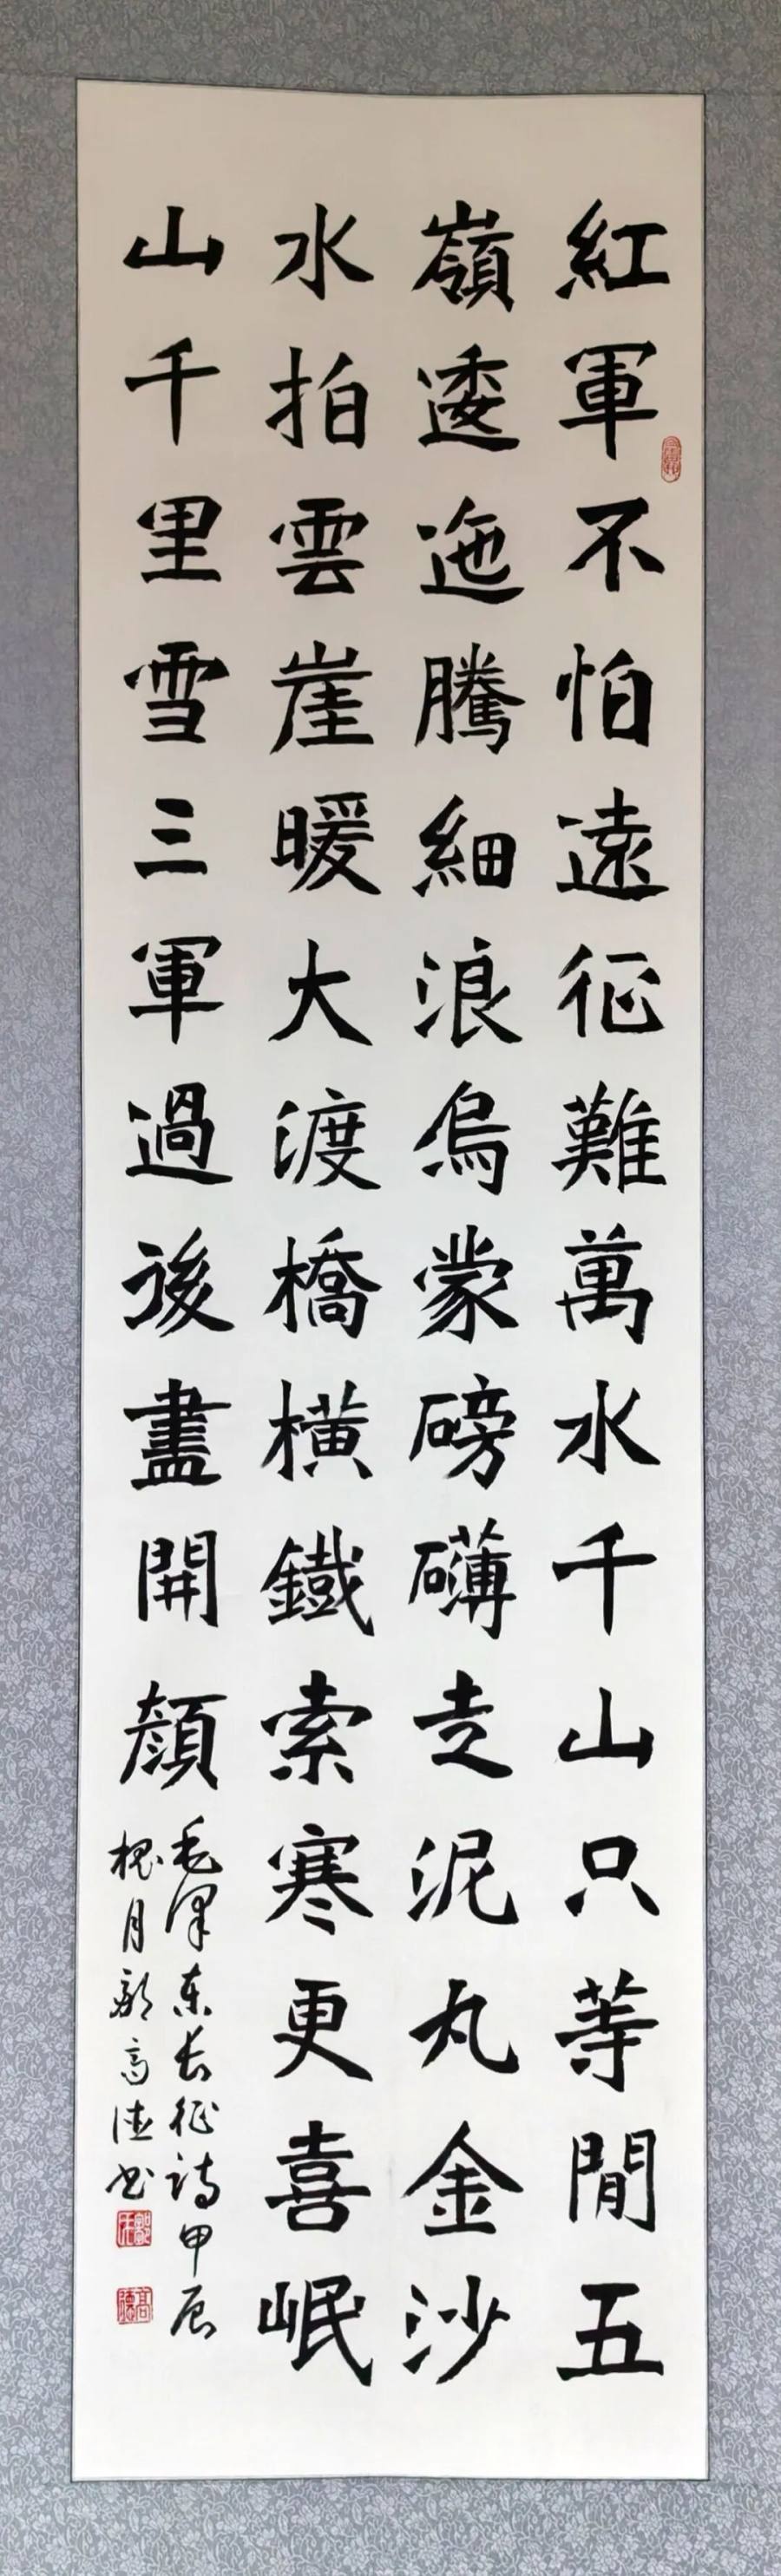 紅軍不怕遠征難萬水千山只等閒五
嶺逶迤騰細浪烏蒙磅礴走泥丸金沙
水拍雲崖暖大渡橋橫鐵索寒更喜岷
山千里雪三軍過後盡開顏
毛澤东长征诗甲辰
槐月高德书